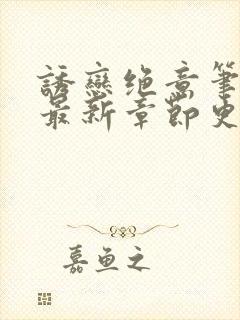 誘戀绝意筆
最新章節史
嘉鱼之